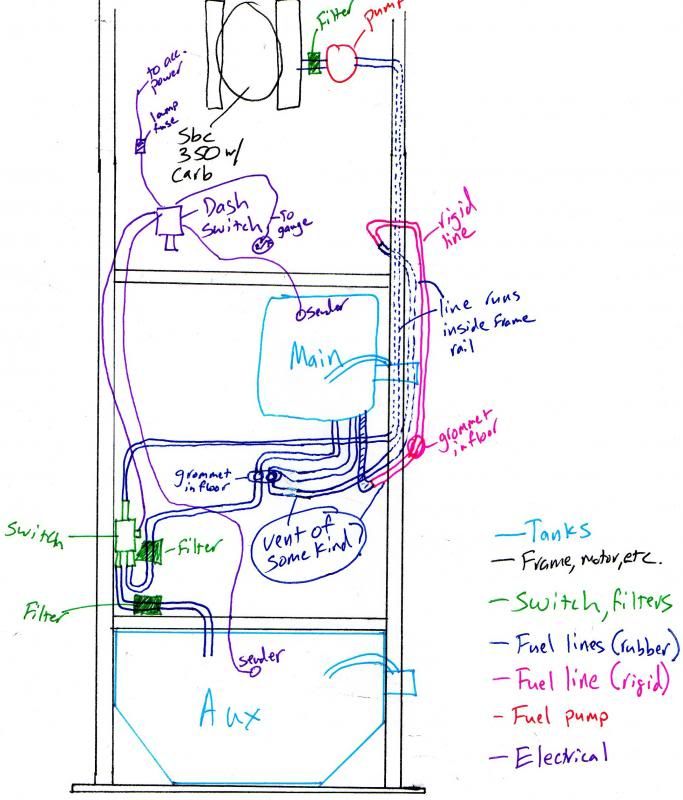 Filter
pump
to acc.
power
lamp
fuse
Sbc
350 w/
Carb
Dash
Switch
To
gauge
rigid
line
sender
line runs
inside frame
rail
Main
grommet
in floor
grommet
in floor
Switch
Filter
vent of
some kind?
Filter
sender
Aux
— Tanks
— Frame, motor, etc.
— Switch, filters
— Fuel lines (rubber)
— Fuel line (rigid)
— Fuel pump
— Electrical